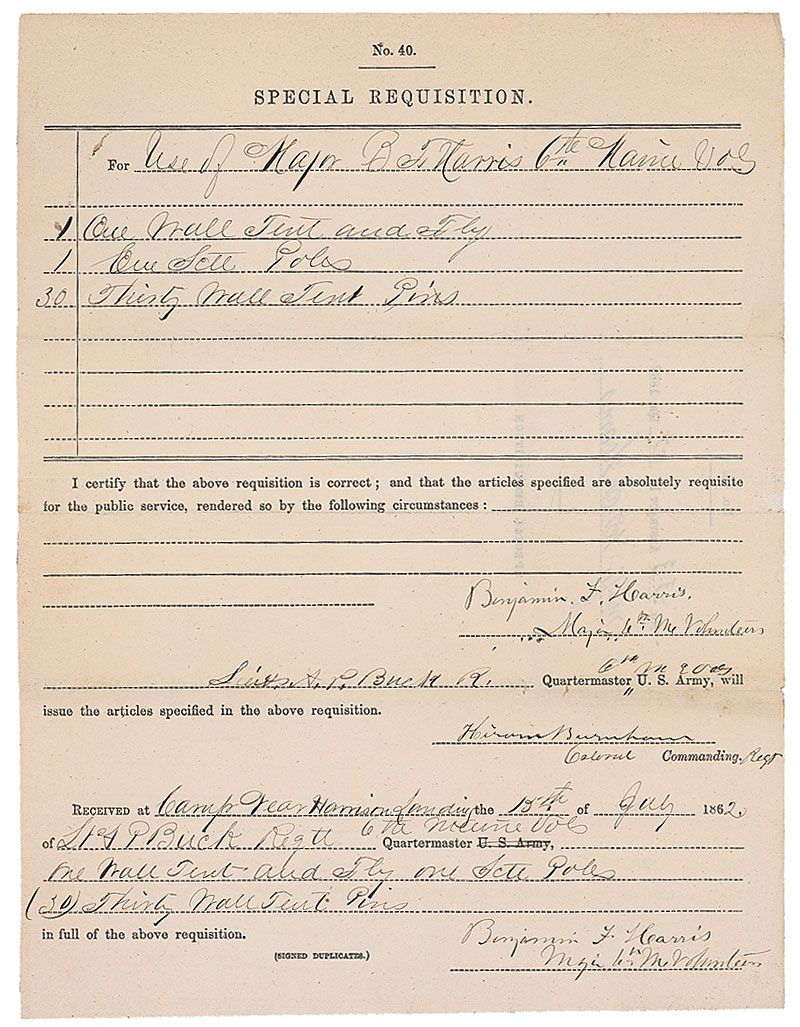 No. 40.
SPECIAL REQUISITION.
For Use of Major B F Harris 6th Maine Vols
1 One Wall Tent and Fly
1 One Sett Poles
30 Thirty Wall Tent Pins
I certify that the above requisition is correct; and that the articles specified are absolutely requisite
for the public service, rendered so by the following circumstances:
Benjamin. F. Harris.
Major 6th Me Volunteers
Lieut. A. P. Buck R. Quartermaster 6th M Vols U. S. Army, will
issue the articles specified in the above requisition.
Hiram Burnham
Colonel Commanding. Regt
RECEIVED at Camp Near Harrison Landing the 15th of July 1862.
of Lt A P Buck Regtl Quartermaster 6th Maine Vols U. S. Army,
One Wall Tent and Fly one Sett Poles
(30) Thirty Wall Tent Pins
in full of the above requisition.
(SIGNED DUPLICATES.)
Benjamin F Harris
Major 6th Me Volunteers